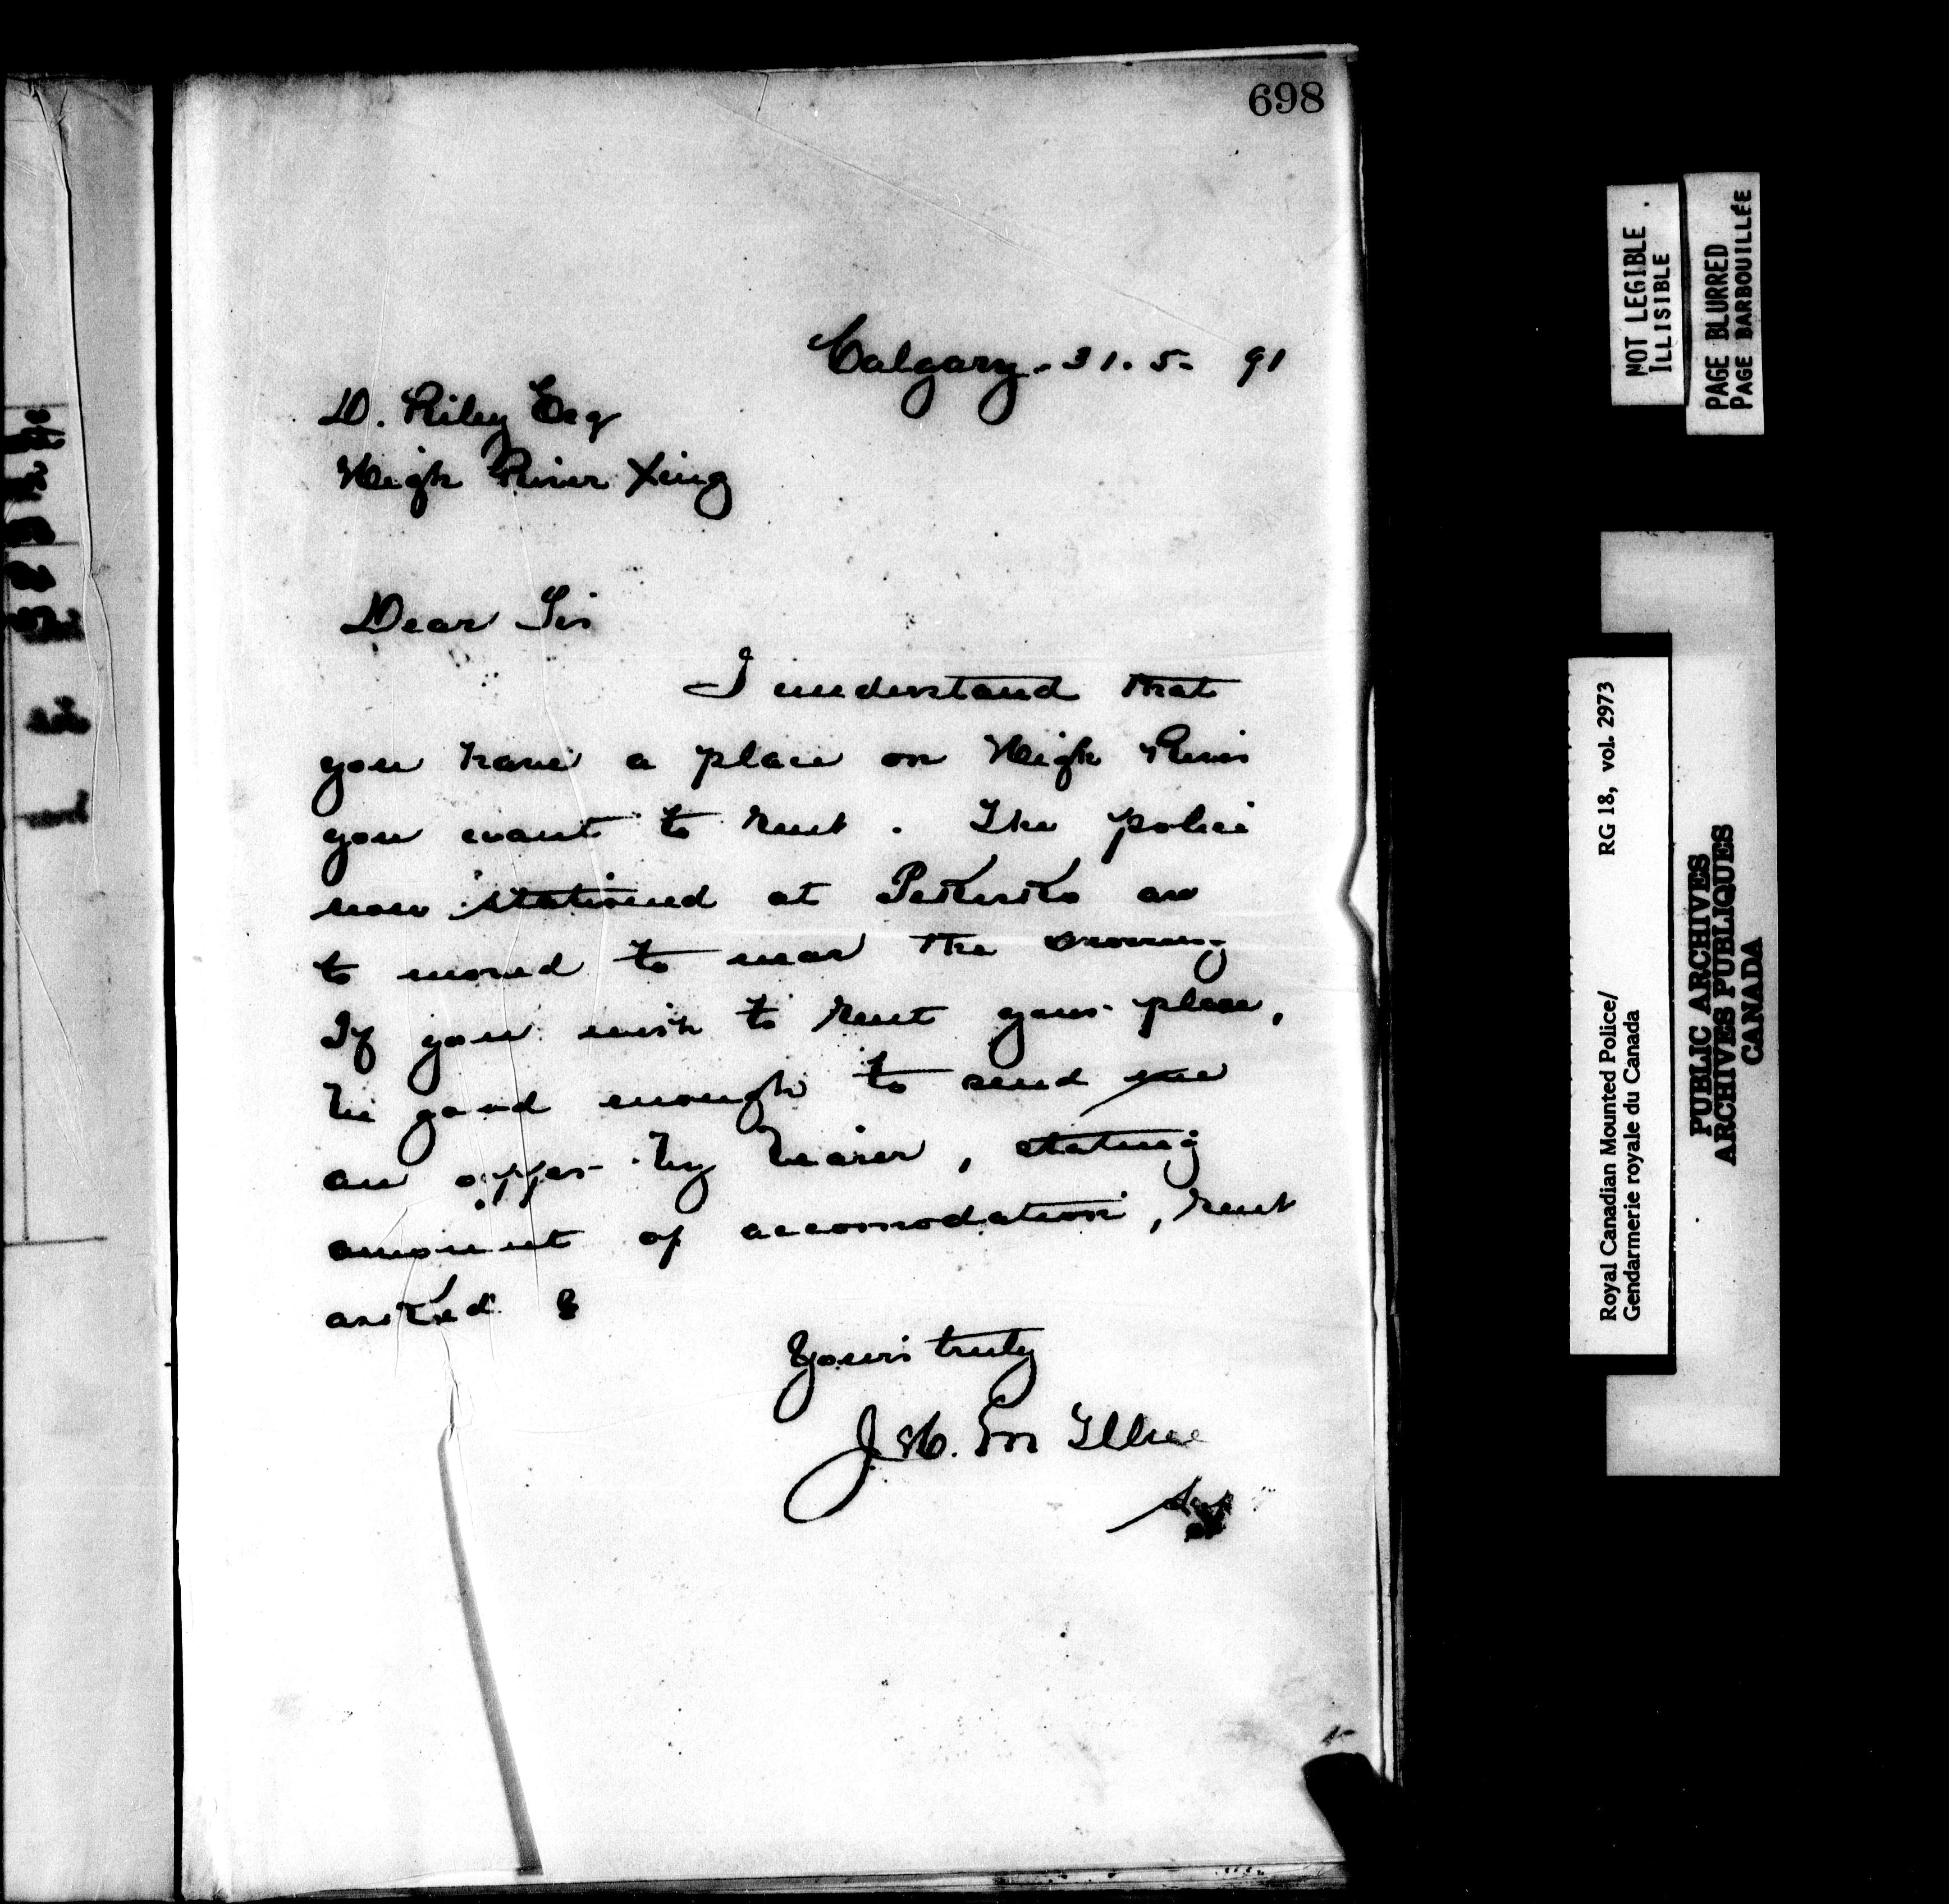 698
Calgary. 31. 5. 91
D. Riley Esq
High River Xing
Dear Sir
I understand that
you have a place on High River
you want to rent. The police
now stationed at Pekisko are
to moved to near the crossing
If you wish to rent your place,
be good enough to send me
an offer by bearer, stating
amount of accomodation, rent
asked &
Yours truly
J H. McIllree
Supt
NOT LEGIBLE
ILLISIBLE
PAGE BLURRED
PAGE BARBOUILLÉE
Royal Canadian Mounted Police/ RG 18, vol. 2973
Gendarmerie royale du Canada
PUBLIC ARCHIVES
ARCHIVES PUBLIQUES
CANADA